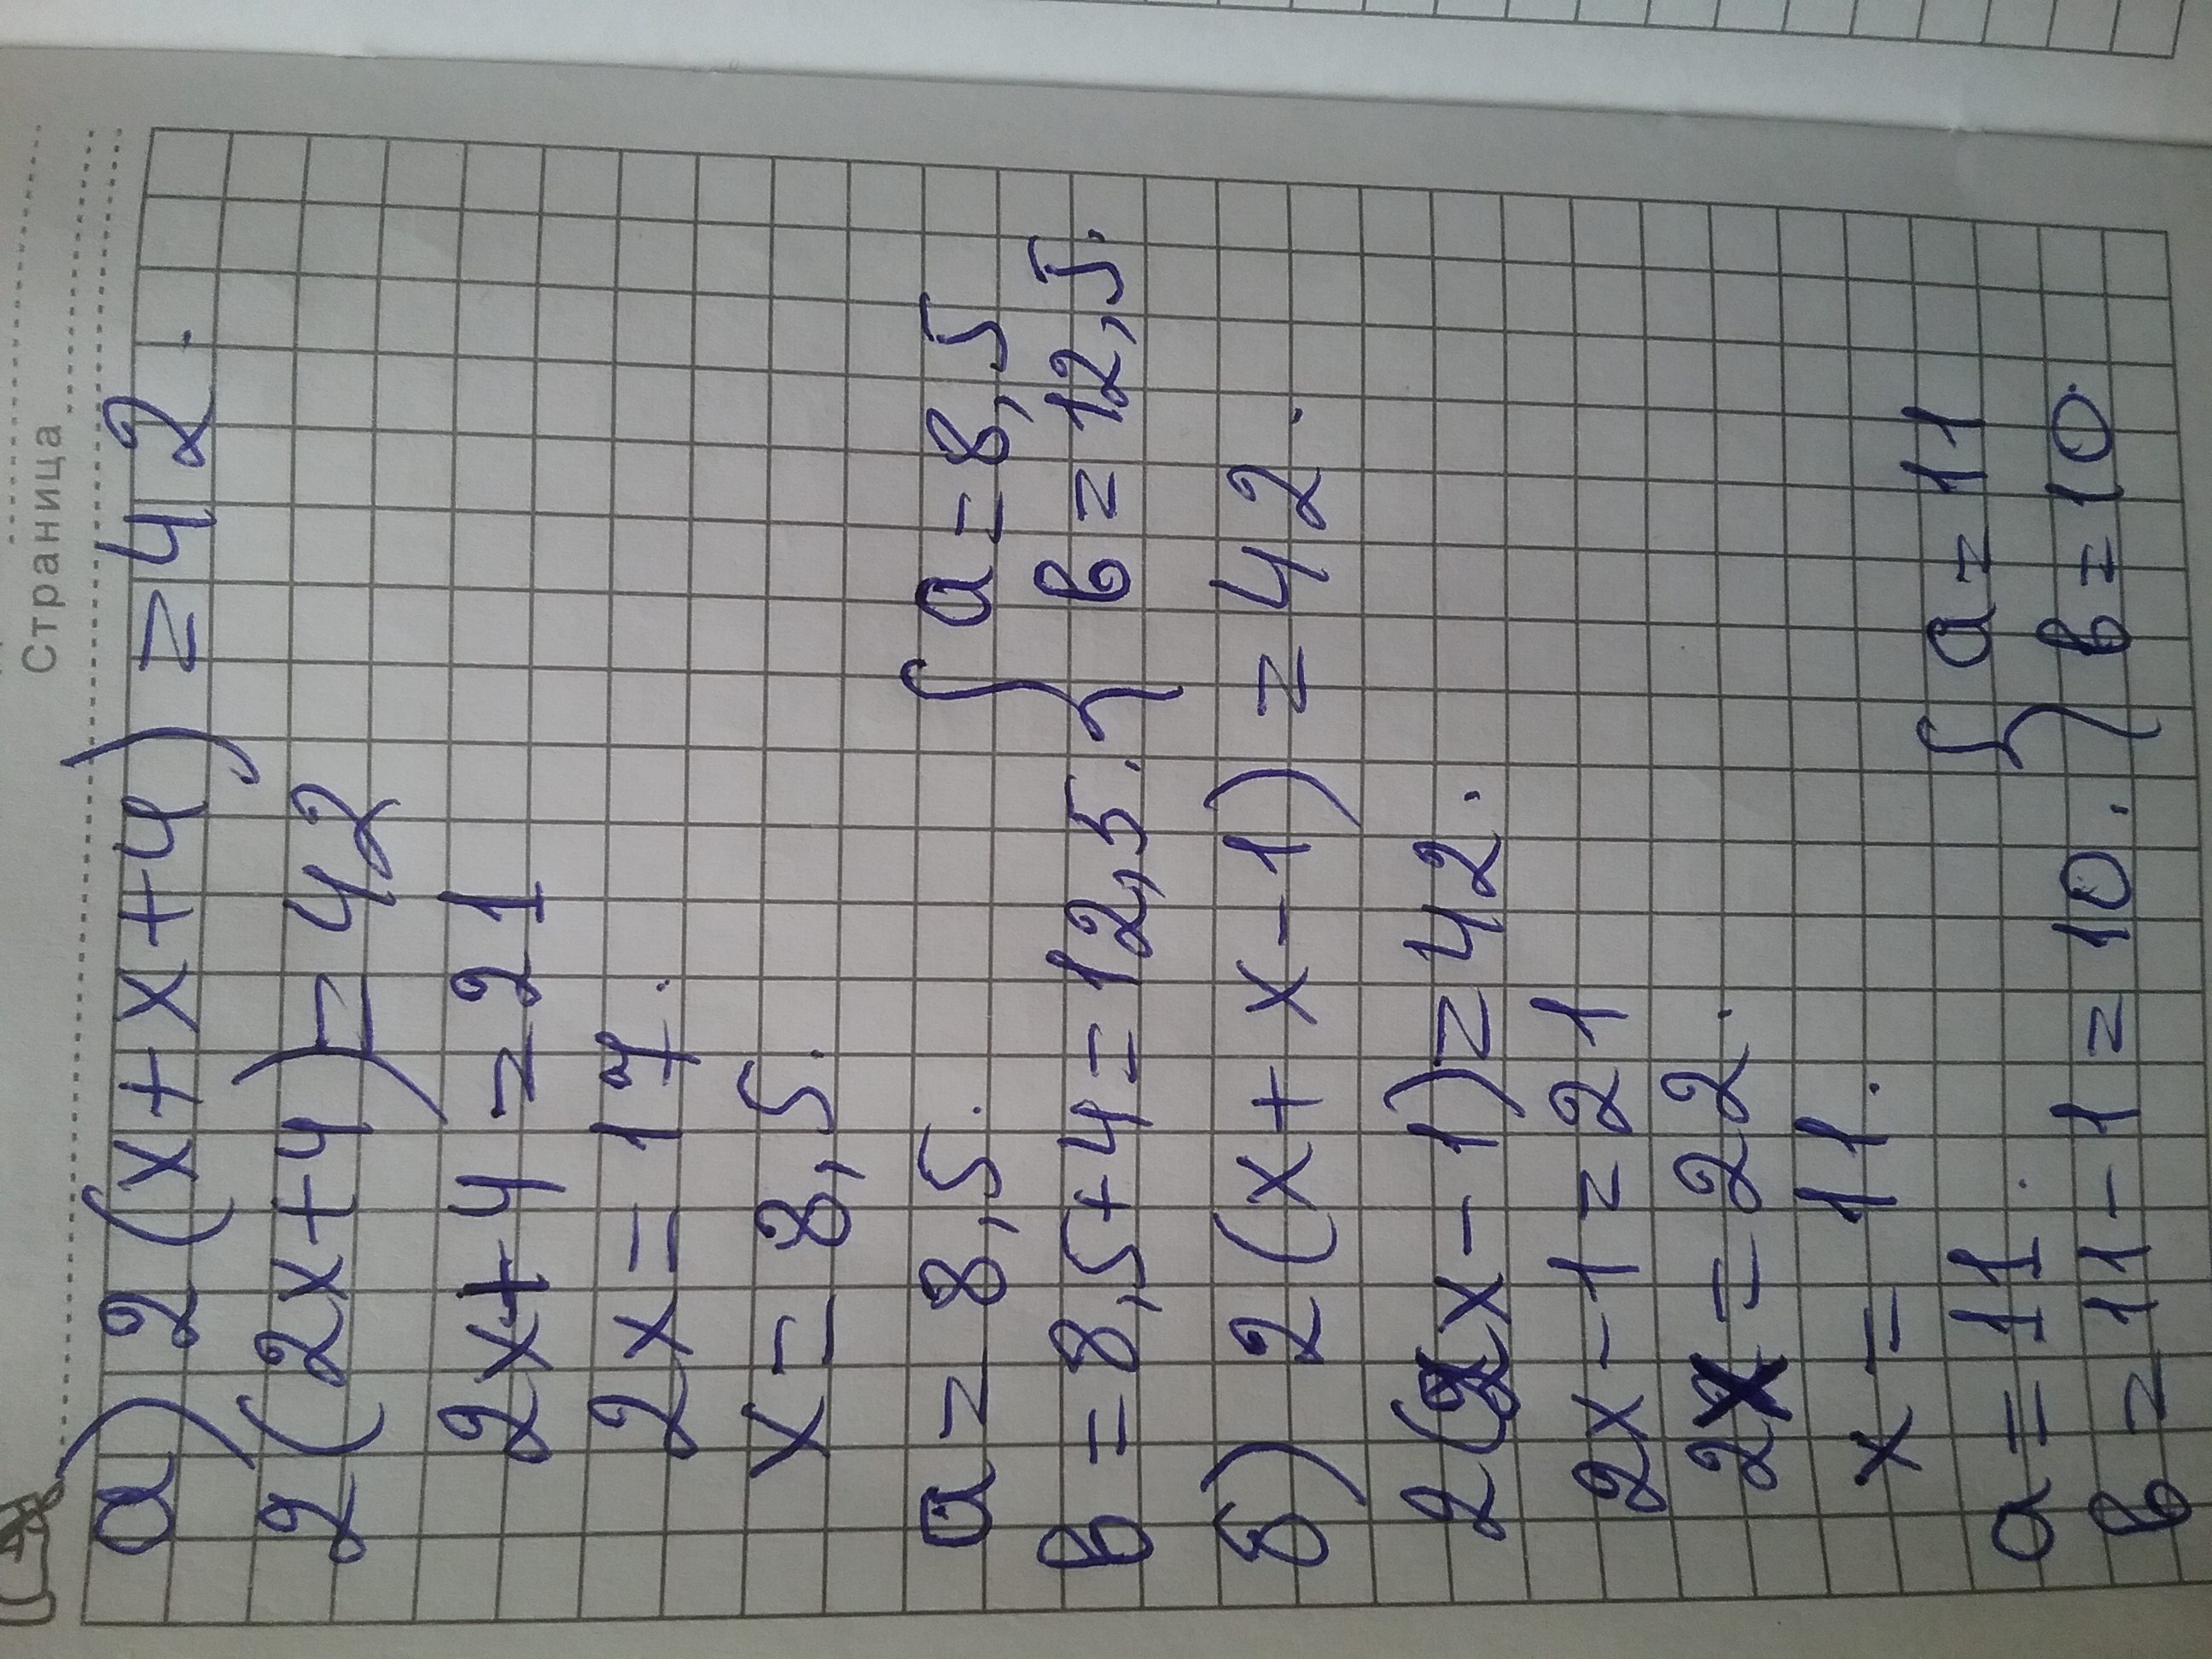 Страница
а) 2(x+x+4)=42.
2(2x+4)=42
2x+4=21
2x=17.
x=8,5.
a=8,5. { a=8,5
в=8,5+4=12,5. в=12,5.
б) 2(x+x-1)=42.
2(2x-1)=42.
2x-1=21
2x=22.
x=11.
a=11. { a=11
в=11-1=10. в=10.